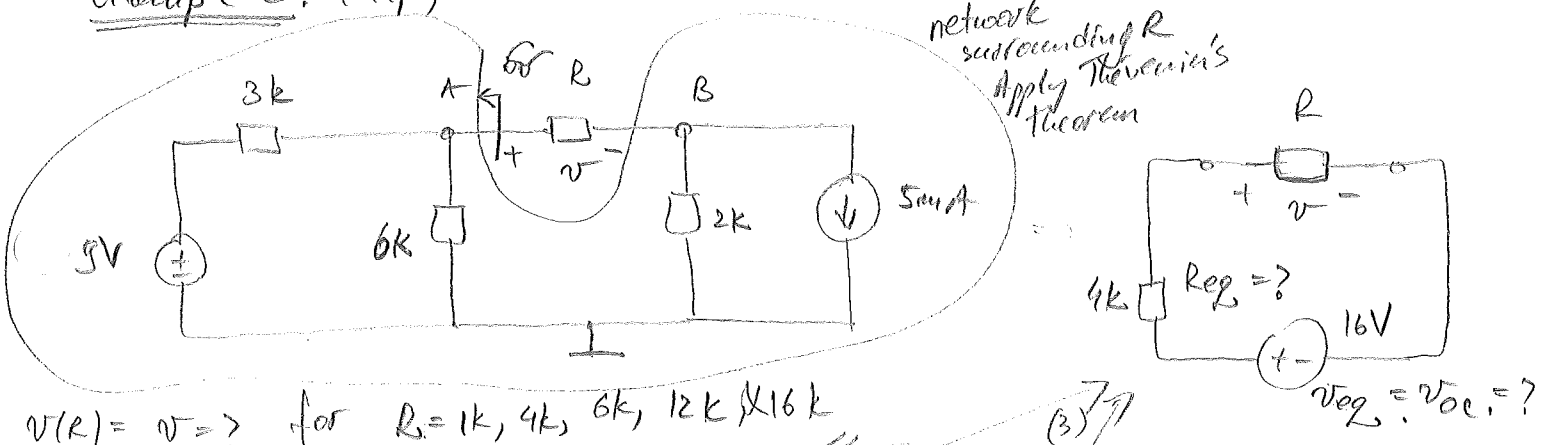 Example 2.
network
surrounding R
Apply Thévenin's
theorem
3k
A
for
R
B
+ v -
6k
2k
5mA
9V
+
R
+ v -
4k
Req = ?
16V
+ -
veq = voc = ?
v(R) = v = > for R = 1k, 4k, 6k, 12k, 16k
(3)